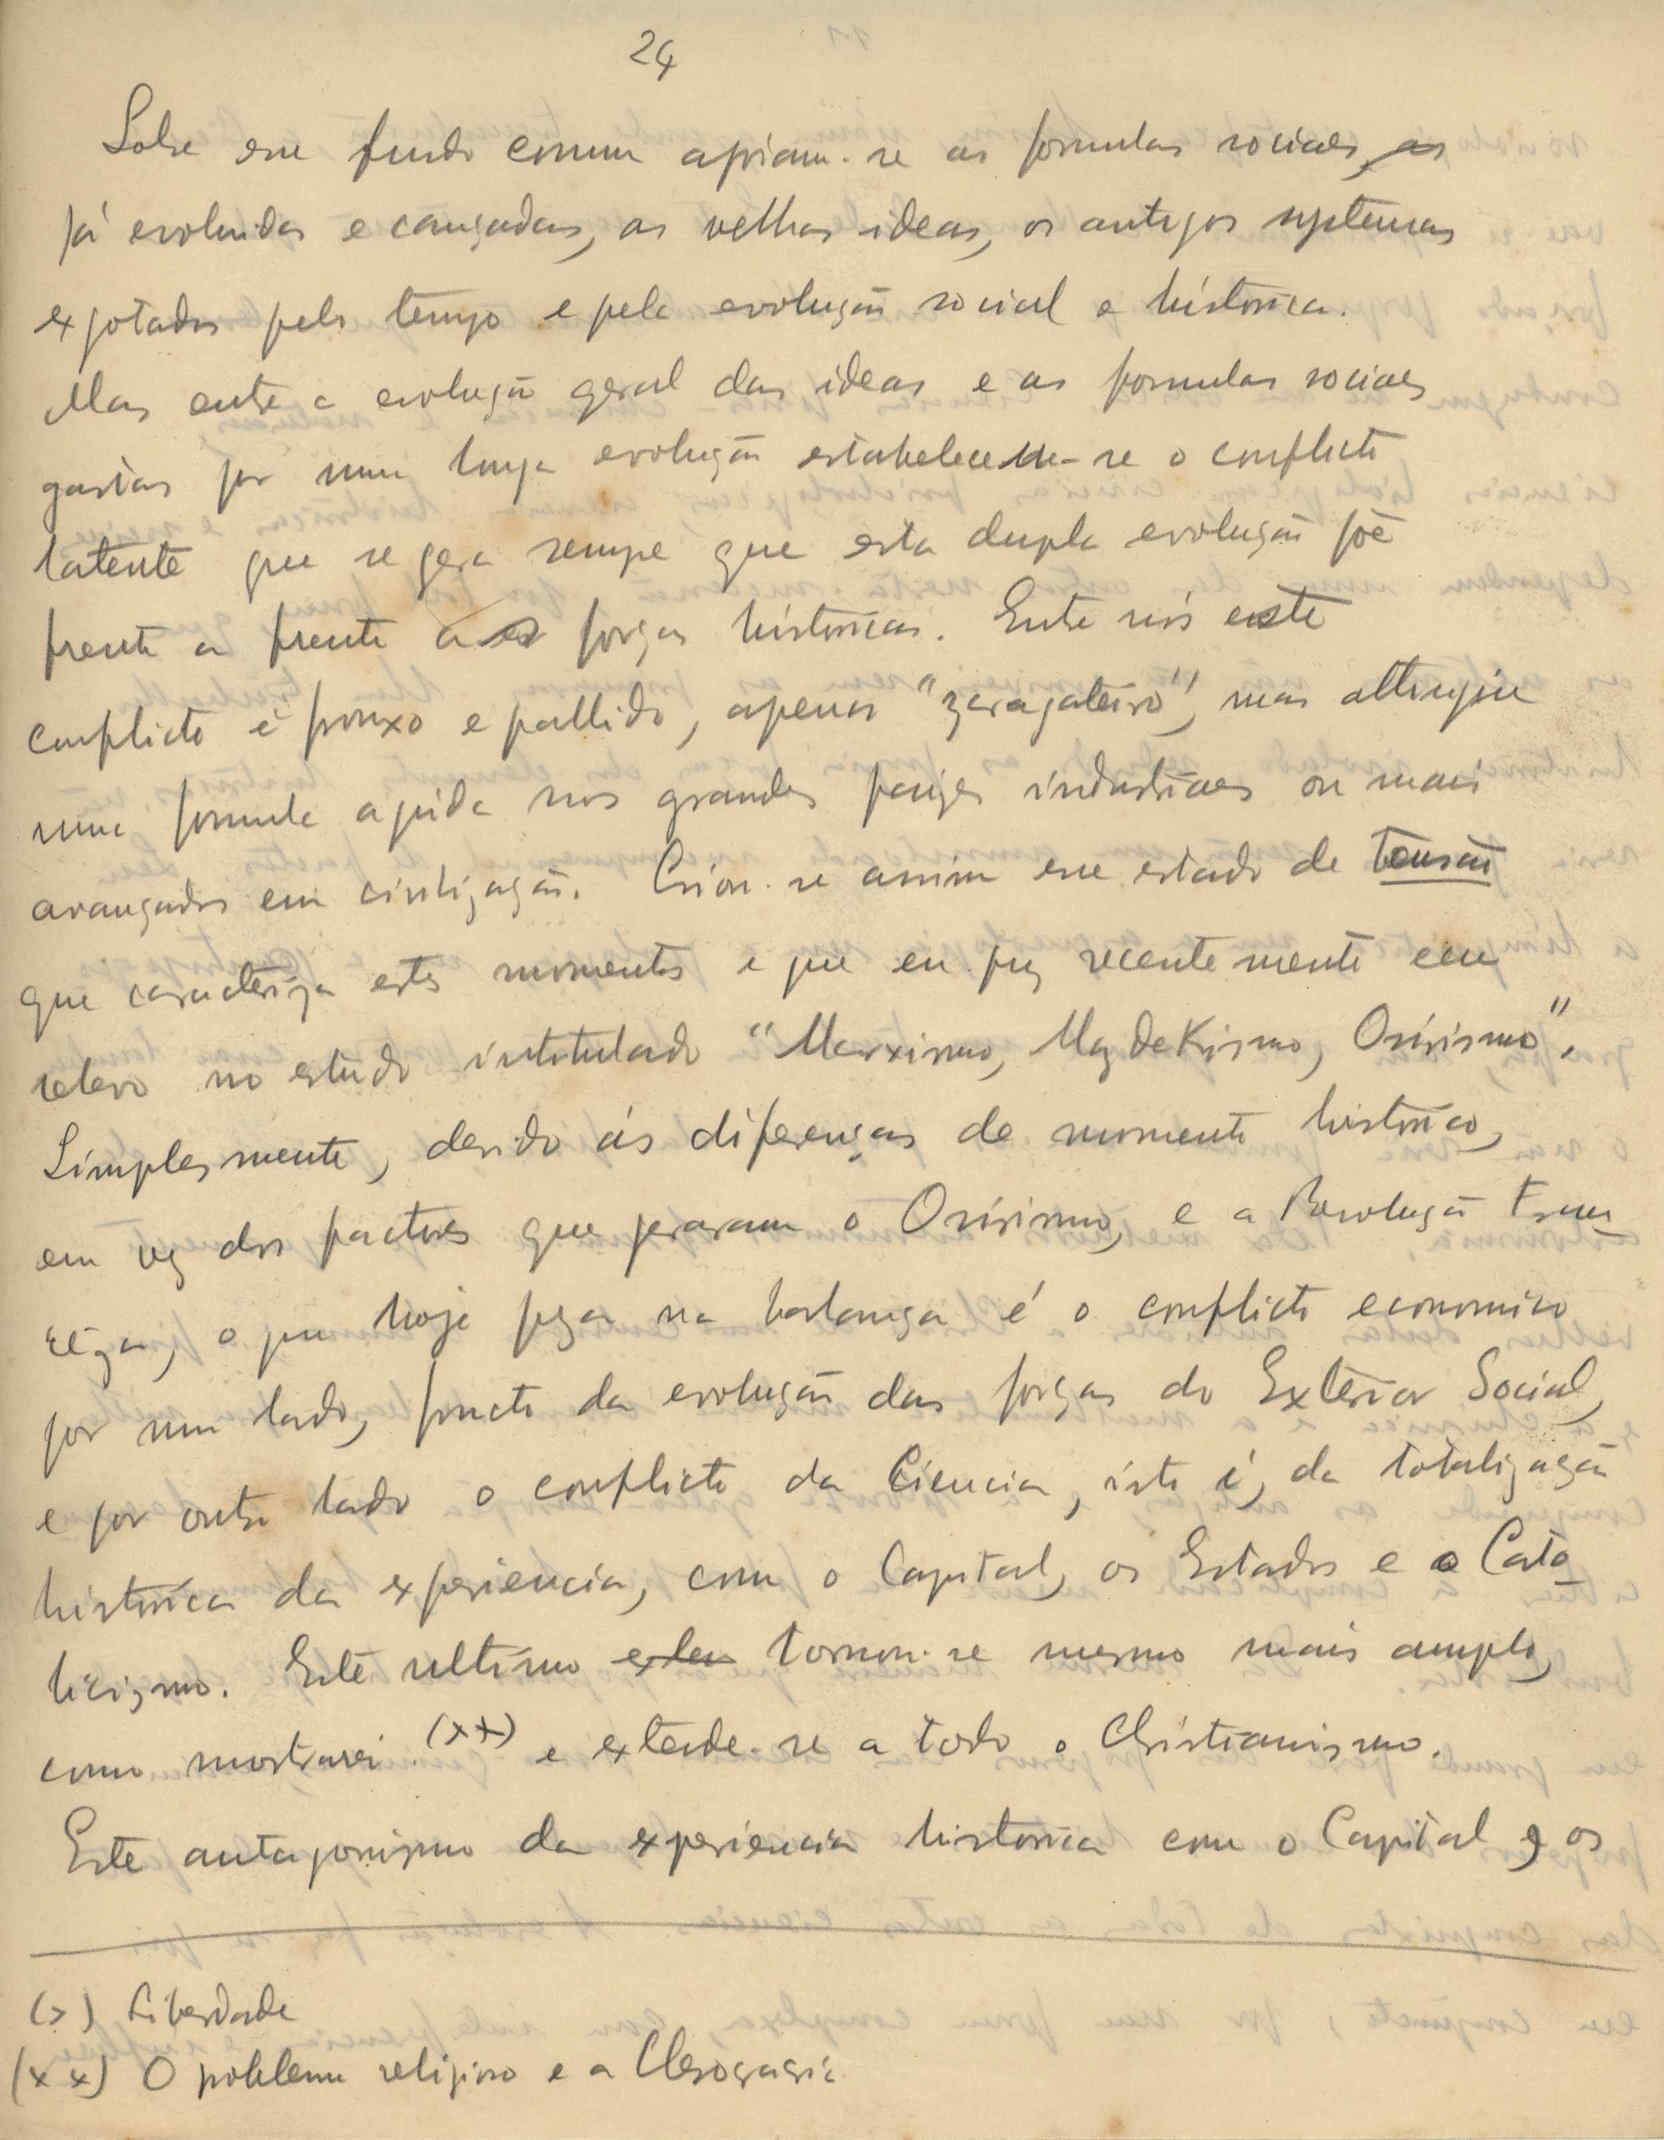 24
Sobre esse fundo comum apoiam-se as formulas sociaes, as
já evoluidas e cançadas, as velhas ideas, os antigos systemas
exgotados pelo tempo e pela evolução social e historica.
Mas entre a evolução geral das ideas e as formulas sociaes
gastas por uma longa evolução estabelece-se o conflicto
latente que se gera sempre que esta dupla evolução põe
frente a frente as forças historicas. Entre nós este
conflicto é frouxo e pallido, apenas "zaragateiro", mas attingiu
uma formula aguda nos grandes paizes industriaes ou mais
avançados em civilização. Criou-se assim esse estado de tensão
que caracteriza estes momentos e que eu puz recentemente em
relevo no estudo intitulado "Marxismo, Mazdekismo, Osirismo".
Simplesmente, devido ás diferenças de momento historico,
em vez dos factores que geraram o Osirismo, e a Revolução Fran
cêza, o que hoje peza na balança é o conflicto economico
por um lado, fructo da evolução das forças do Exterior Social,
e por outro lado o conflicto da Ciencia, isto é, da totalização
historica da experiencia, com o Capital, os Estados e o Cato
licismo. Este ultimo tornou-se mesmo mais amplo,
como mostrarei (xx) e extende-se a todo o Christianismo.
Este antagonismo da experiencia historica com o Capital, os
(x) Liberdade
(xx) O problema religioso e a Clerocracia